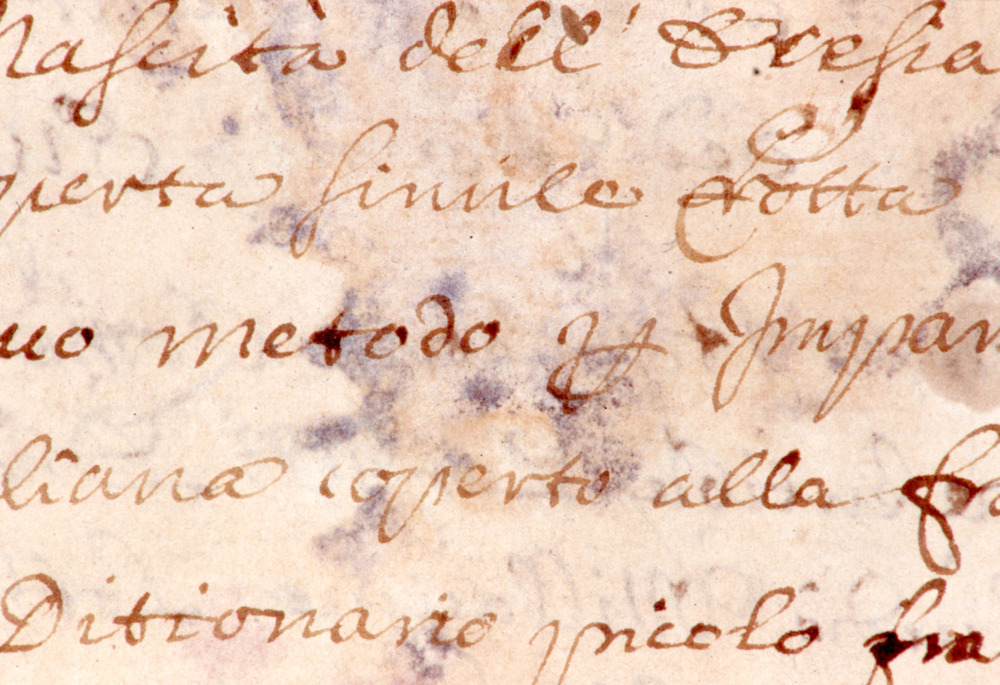 Nascita dell' Eresia
perta simile Rotta
uo metodo p Impar
liana coperto alla fra
Ditionario picolo fra